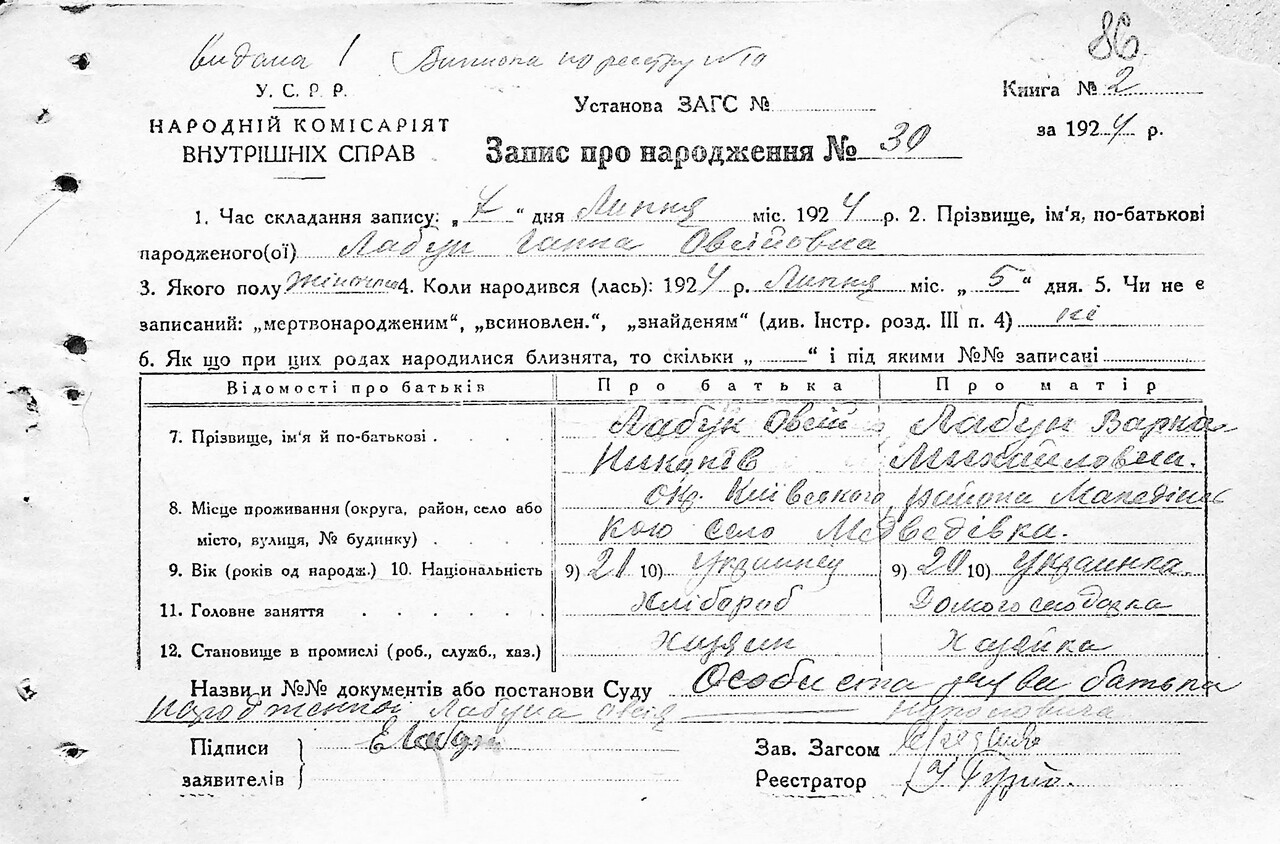 86
видана 1 Виписка по реєстру № 10
У. С. Р. Р.
НАРОДНІЙ КОМІСАРІЯТ
ВНУТРІШНІХ СПРАВ
Установа ЗАГС №
Книга № 2
за 1924 р.
Запис про народження № 30
1. Час складання запису: „ 7 “ дня Липня міс. 1924 р. 2. Прізвище, ім'я, по-батькові
народженого(ої) Лабун Ганна Овсійовна
3. Якого полу жіночого 4. Коли народився (лась): 1924 р. Липня міс. „ 5 “ дня. 5. Чи не є
записаний: „мертвонародженим“, „всиновлен.“, „знайденям“ (див. Інстр. розд. III п. 4) ні
6. Як що при цих родах народилися близнята, то скільки „ “ і під якими №№ записані
Відомості про батьків Про батька Про матір
7. Прізвище, ім'я й по-батькові Лабун Овсій Лабун Варка
Михайловна.
8. Місце проживання (округа, район, село або окр. Київського, района
місто, вулиця, № будинку) село Медведівка.
9. Вік (років од народж.) 10. Національність 9) 21 10) Украинец 9) 20 10) Украинка
11. Головне заняття Хлібороб
12. Становище в промислі (роб., служб., хаз.) Хазяин Хазяйка
Назви и №№ документів або постанови Суду Особиста батька
Лабуна Овсія
Підписи
заявителів
Зав. Загсом
Реєстратор